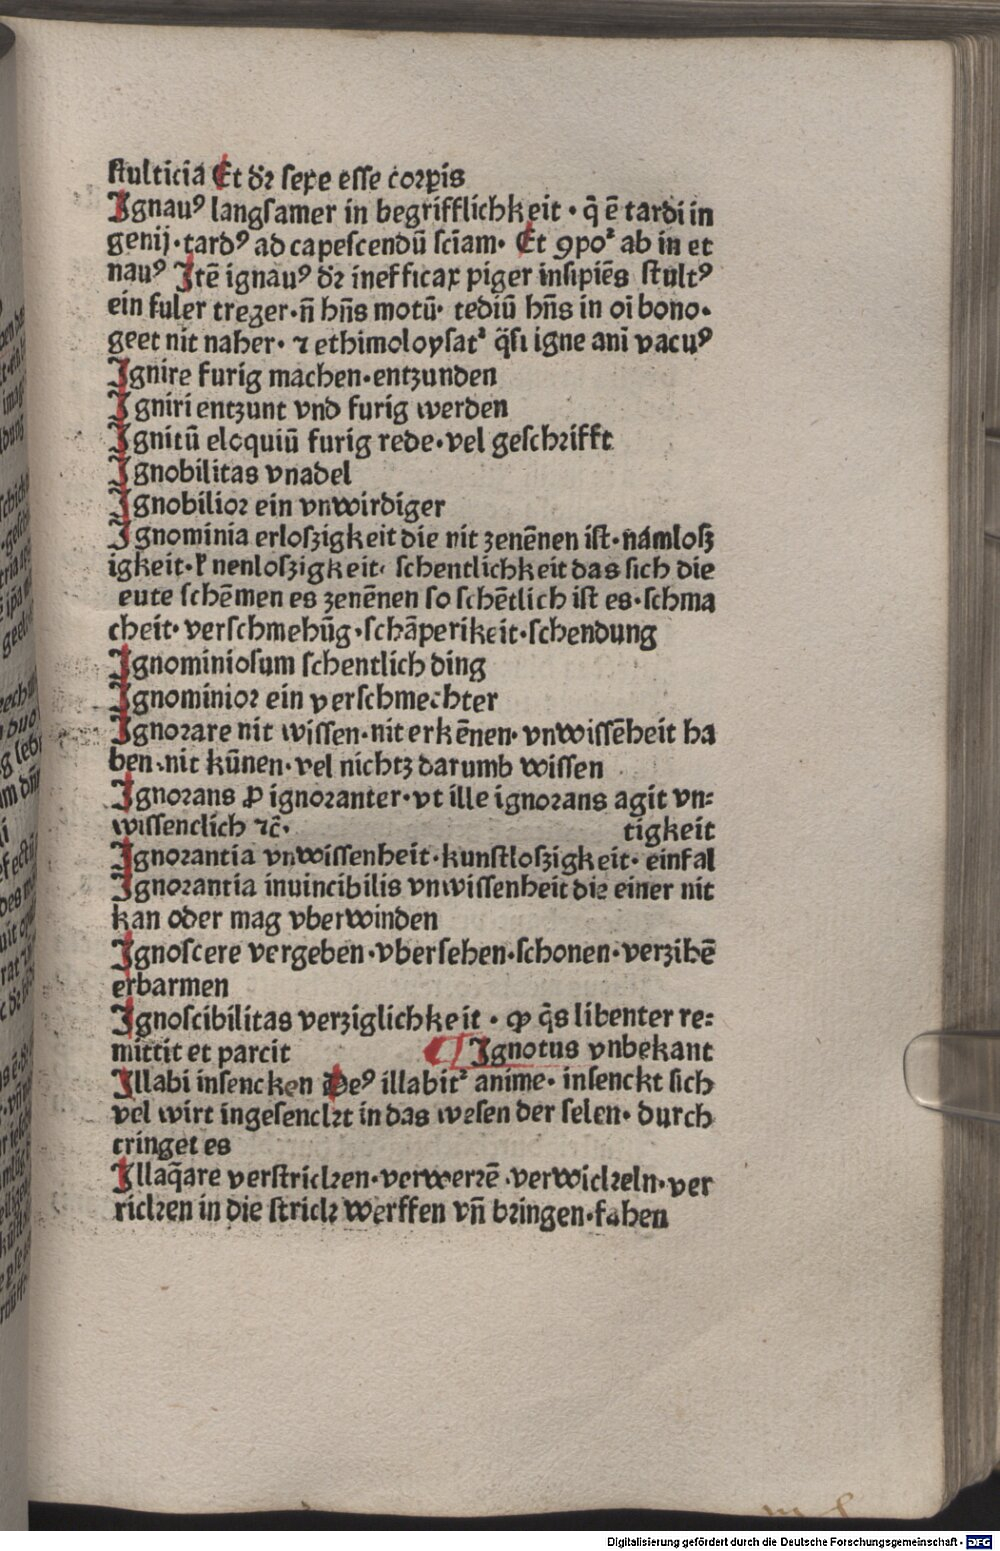 ſtulticia Et dr̄ ſepe eſſe corꝑis
Ignauꝰ langſamer in begrifflichkeit · q̄ ē tardi in
genij · tardꝰ ad capeſcendū ſciam̄ · Et ꝯpoꝛ ab in et
nauꝰ Itē ignauꝰ dr̄ inefficax piger inſipiēs ſtultꝰ
ein fuler trezer · n̄ hn̄s motū · tediū hn̄s in oī bono ·
geet nit naher · ⁊ ethimoloyſatᷣ q̄ſi igne ani̅ vacuꝰ
Ignire furig machen · entzunden
Igniri entzunt vnd furig werden
Ignitū eloquiū furig rede · vel geſchrifft
Ignobilitas vnadel
Ignobilior ein vnwirdiger
Ignominia erloſzigkeit die nit zenēnen iſt · namloſz
igkeit · nenloſzigkeit · ſchentlichkeit das ſich die
eute ſchēmen es zenēnen ſo ſchētlich iſt es · ſchma
cheit · verſchmehūg · ſchāperikeit · ſchendung
Ignominioſum ſchentlich ding
Ignominior ein verſchmechter
Ignorare nit wiſſen · nit erkēnen · vnwiſſēheit ha
ben · nit kūnen · vel nichtz darumb wiſſen
Ignorans ꝓ ignoranter · vt ille ignorans agit vn⸗
wiſſenclich ⁊c̄ · tigkeit
Ignorantia vnwiſſenheit · kunſtloſzigkeit · einfal
Ignorantia inuincibilis vnwiſſenheit die einer nit
kan oder mag vberwinden
Ignoſcere vergeben · vberſehen · ſchonen · verzihē
erbarmen
Ignoſcibilitas verziglichkeit · ꝙ q̄s libenter re⸗
mittit et parcit ¶ Ignotus vnbekant
Illabi inſencken Deꝰ illabitᷣ anime · inſenckt ſich
vel wirt ingeſenckt in das weſen der ſelen · durch
tringet es
Illaq̄are verſtricken · verwerrē · verwickeln · ver
ricken in die ſtrick werffen vn̄ bringen · fahen
Digitalisierung gefördert durch die Deutsche Forschungsgemeinschaft - DFG